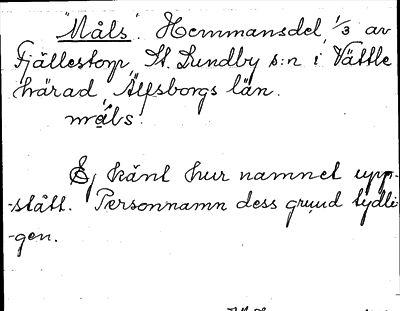 "Måls". Hemmansdel, 1/3 av
Fjällestorp, St. Lundby s:n i Vättle
härad, Älfsborgs län.
måls.
Ej känt hur namnet upp-
-stått. Personnamn dess grund tydli-
-gen.